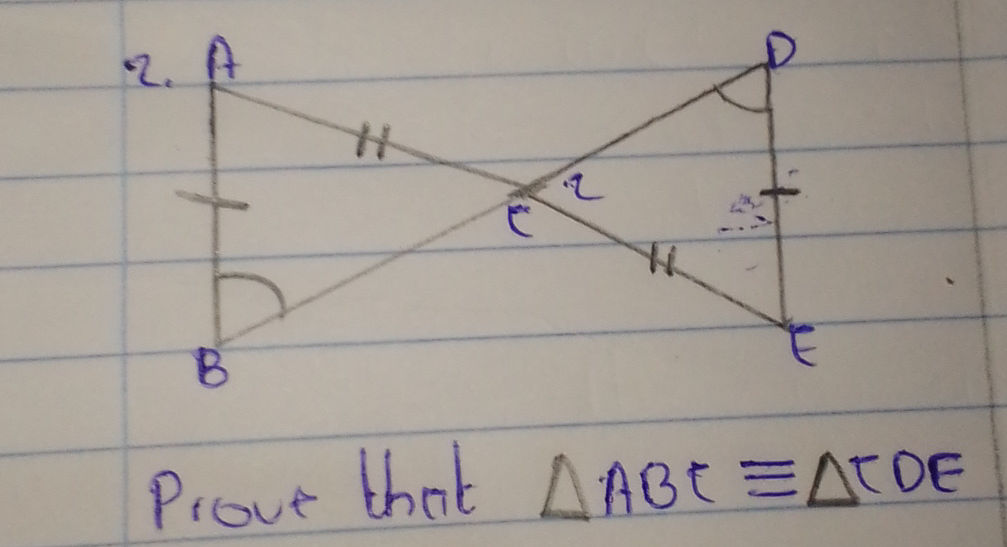 2. A D
C 2
B E
Prove that △ABC ≡ △CDE